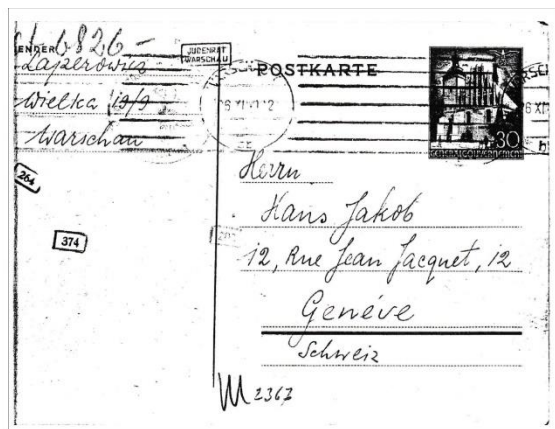 6826-
ENDER
Łazerowicz
Wielka 19/9
Warschau
JUDENRAT
WARSCHAU
POSTKARTE
30
GENERALGOUVERNEMENT
264
374
Herrn
Hans Jakob
12, Rue Jean Jacquet, 12
Genéve
Schweiz
2367